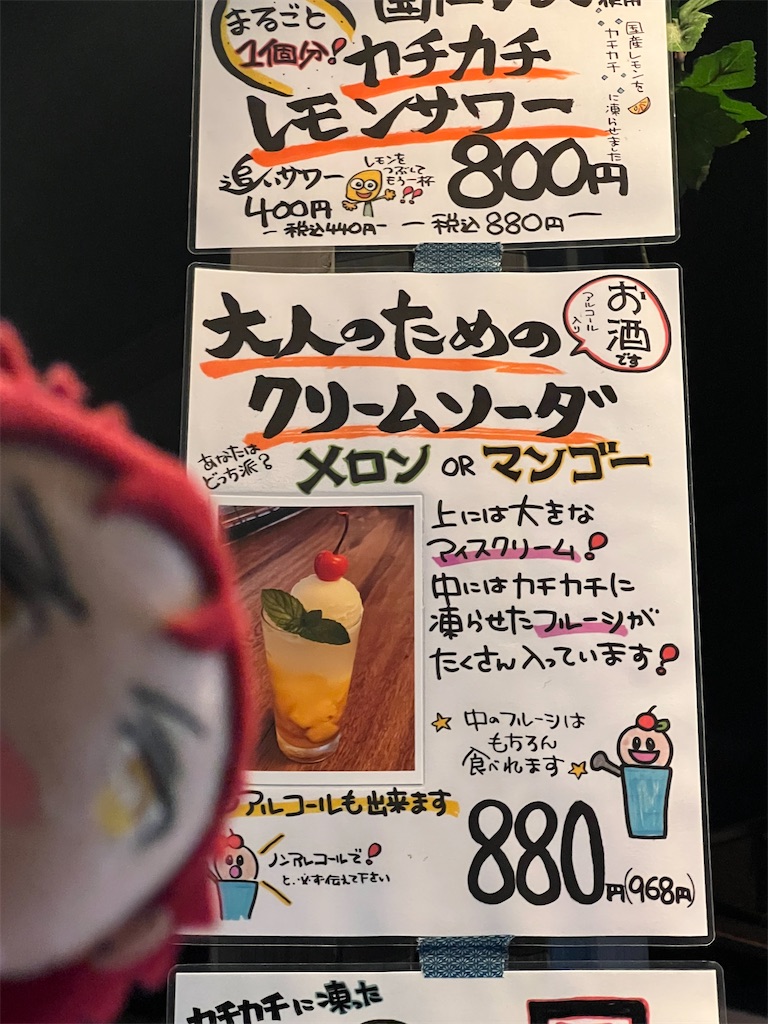 まるごと
1個分!
カチカチ
レモンサワー
国産レモンを
カチカチ
に凍らせました
追いサワー
400円
-税込440円-
レモンを
つぶして
もう一杯
800円
-税込880円-
大人のための
クリームソーダ
お酒です
アルコール入り
あなたは
どっち派?
メロン OR マンゴー
上には大きな
アイスクリーム!
中にはカチカチに
凍らせたフルーツが
たくさん入っています!
中のフルーツは
もちろん
食べれます
アルコールも出来ます
ノンアルコールで!
と、必ず伝えて下さい
880円(968円)
カチカチに凍った